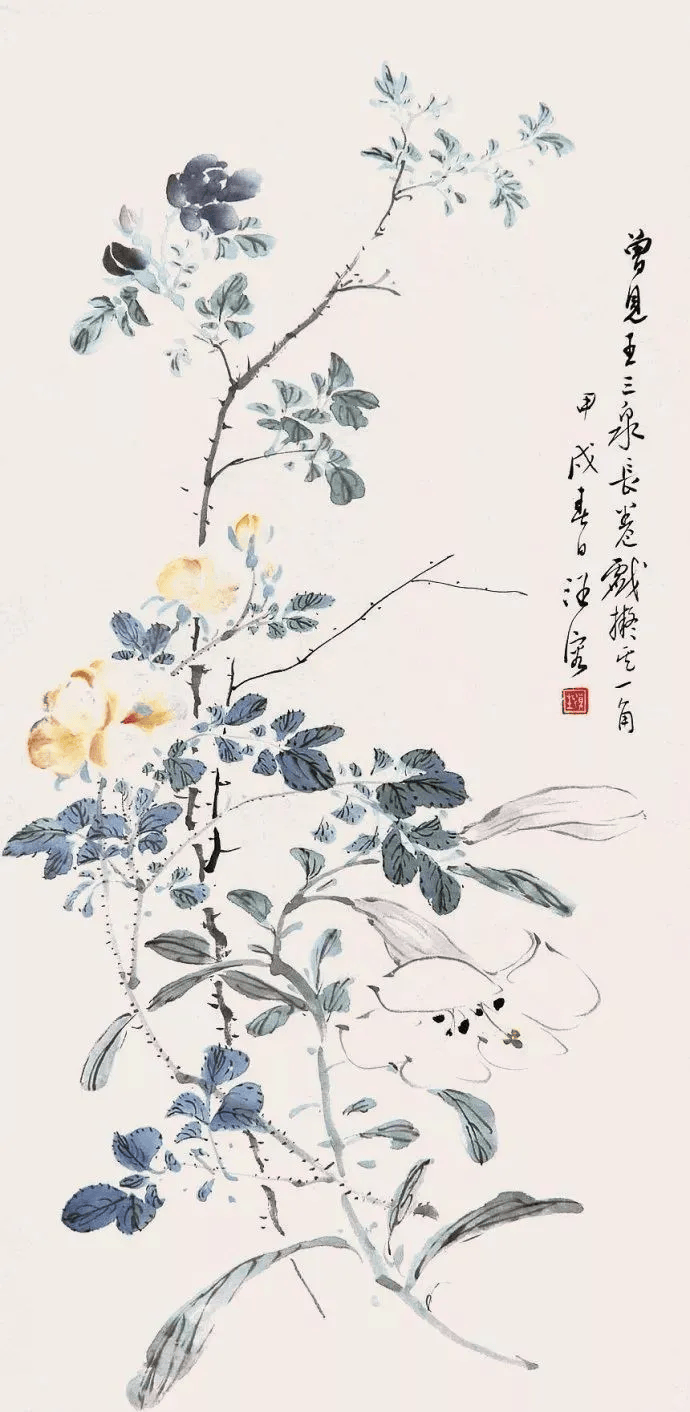 曾見王三泉長卷戲擬其一角
甲戌春日汪溶